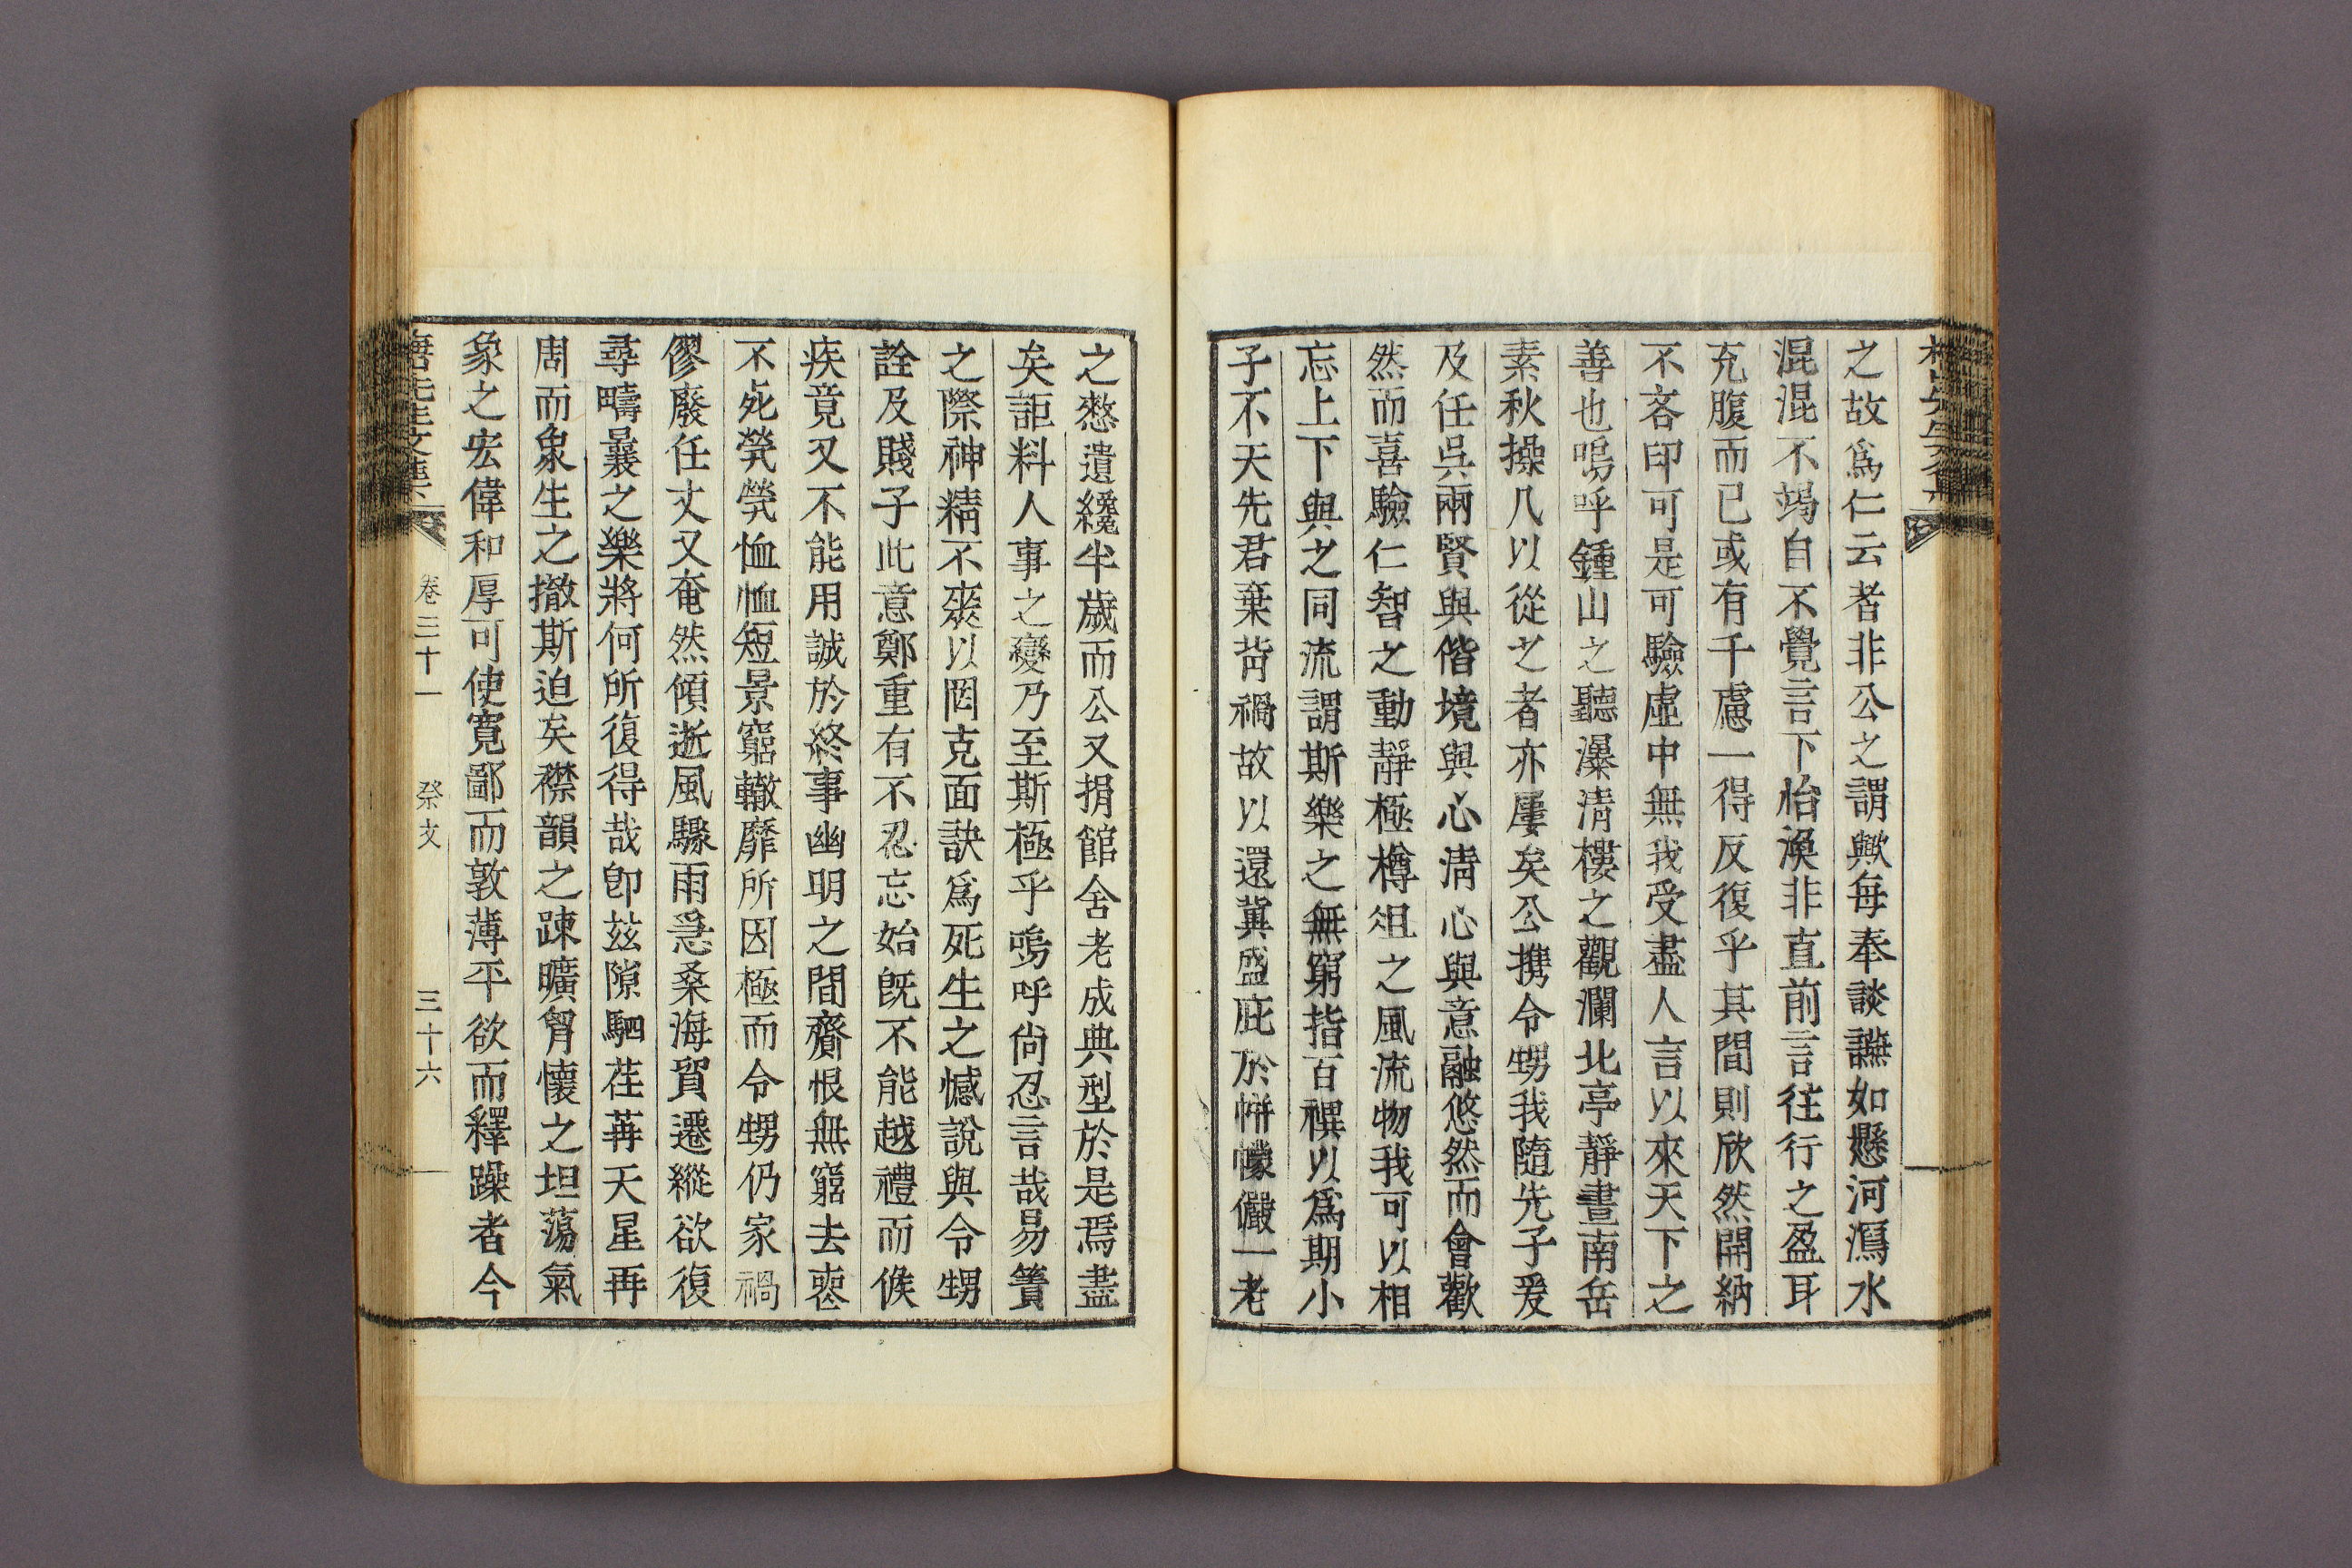 之故爲仁云者非公之謂歟每奉談讌如懸河瀉水
混混不竭自不覺言下怡渙非直前言往行之盈耳
充腹而已或有千慮一得反復乎其間則欣然開納
不吝印可是可驗虛中無我受盡人言以來天下之
善也嗚呼鍾山之聽瀑淸樓之觀瀾北亭靜晝南岳
素秋操几以從之者亦屢矣公携令甥我隨先子爰
及任吳兩賢與偕境與心淸心與意融悠然而會歡
然而喜驗仁智之動靜極樽俎之風流物我可以相
忘上下與之同流謂斯樂之無窮指百禩以爲期小
子不天先君棄背禍故以還冀盛庇於帡幪儼一老
之憖遺纔半歲而公又捐館舍老成典型於是焉盡
矣詎料人事之變乃至斯極乎嗚呼尙忍言哉易簀
之際神精不爽以罔克面訣爲死生之憾說與令甥
詮及賤子此意鄭重有不忍忘始旣不能越禮而候
疾竟又不能用誠於終事幽明之間齎恨無窮去喪
不死煢煢恤恤短景窮轍靡所因極而令甥仍家禍
僇廢任丈又奄然傾逝風驟雨急桑海貿遷縱欲復
尋疇曩之樂將何所復得哉卽玆隙駟荏苒天星再
周而象生之撤斯迫矣襟韻之踈曠胷懷之坦蕩氣
象之宏偉和厚可使寬鄙而敦薄平欲而釋躁者今
先生文集 卷三十一 祭文 三十六